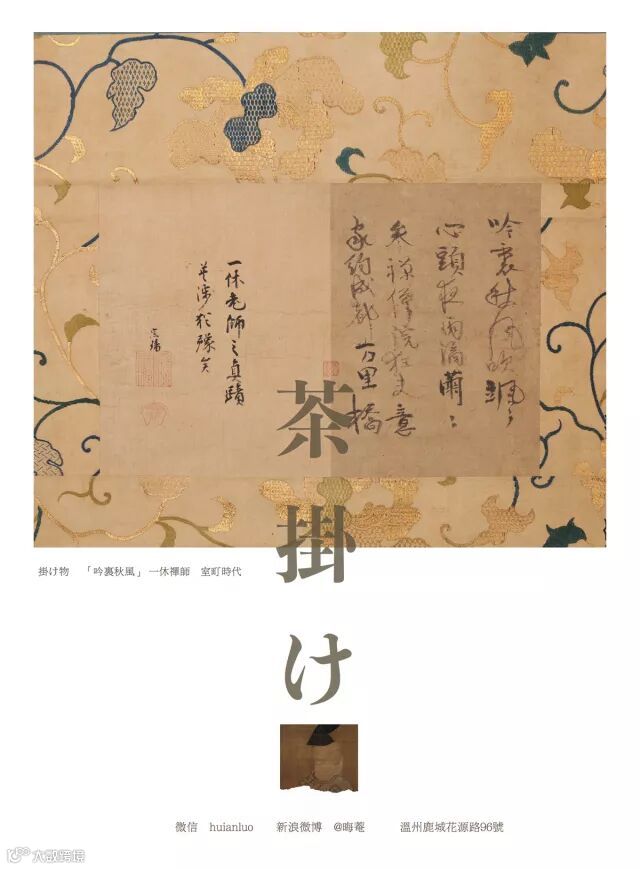 吟裏秋風吹颯〻
心頭夜雨滴蕭〻
參禪僧院狂夫意
家約成都万里橋
一休老師之真蹟
涉猶豫矣
茶掛け
掛け物　「吟裏秋風」 一休禪師　室町時代
微信　huianluo　　新浪微博　@晦菴　　　溫州鹿城花源路96號
大数跨境